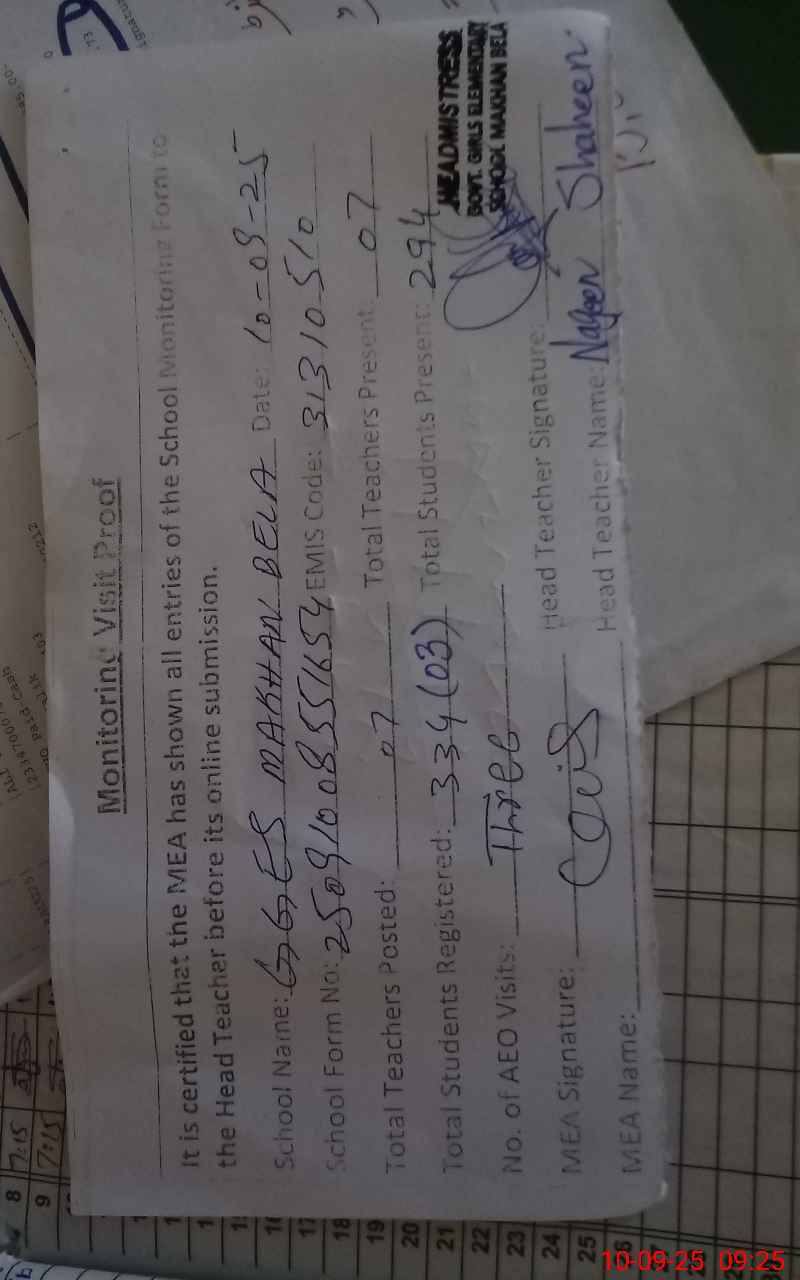 Monitoring Visit Proof
It is certified that the MEA has shown all entries of the School Monitoring Form to
the Head Teacher before its online submission.
School Name: GGES MAKHAN BELA Date: 10-09-25
School Form No: 25091008551654 EMIS Code: 31310510
Total Teachers Posted: 07 Total Teachers Present: 07
Total Students Registered: 334(03) Total Students Present: 294
No. of AEO Visits: Three
HEADMISTRESS
GOVT. GIRLS ELEMENTARY
SCHOOL MAKHAN BELA
MEA Signature: Head Teacher Signature:
MEA Name: Head Teacher Name: Nageen Shaheen
8 7:15
9 7:15
16
17
18
19
20
21
22
23
24
25
26
10-09-25 09:25